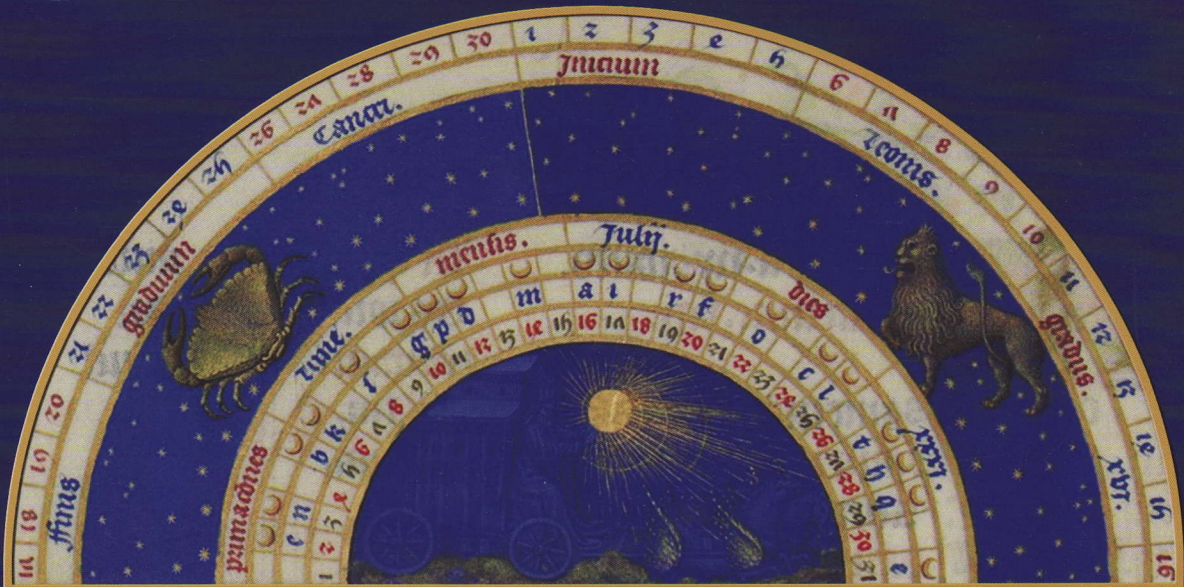 17 18 19 20 21 22 23 24 25 26 27 28 29 30 1 2 3 4 5 6 7 8 9 10 11 12 13 14 15 16
ffinis graduum Cancri. Inicium Leonis. gradus.
primaciones lune. mensis. Julij. dies xxxi.
n b k f g p d m a i r f o c l t h q
1 2 3 4 5 6 7 8 9 10 11 12 13 14 15 16 17 18 19 20 21 22 23 24 25 26 27 28 29 30 31